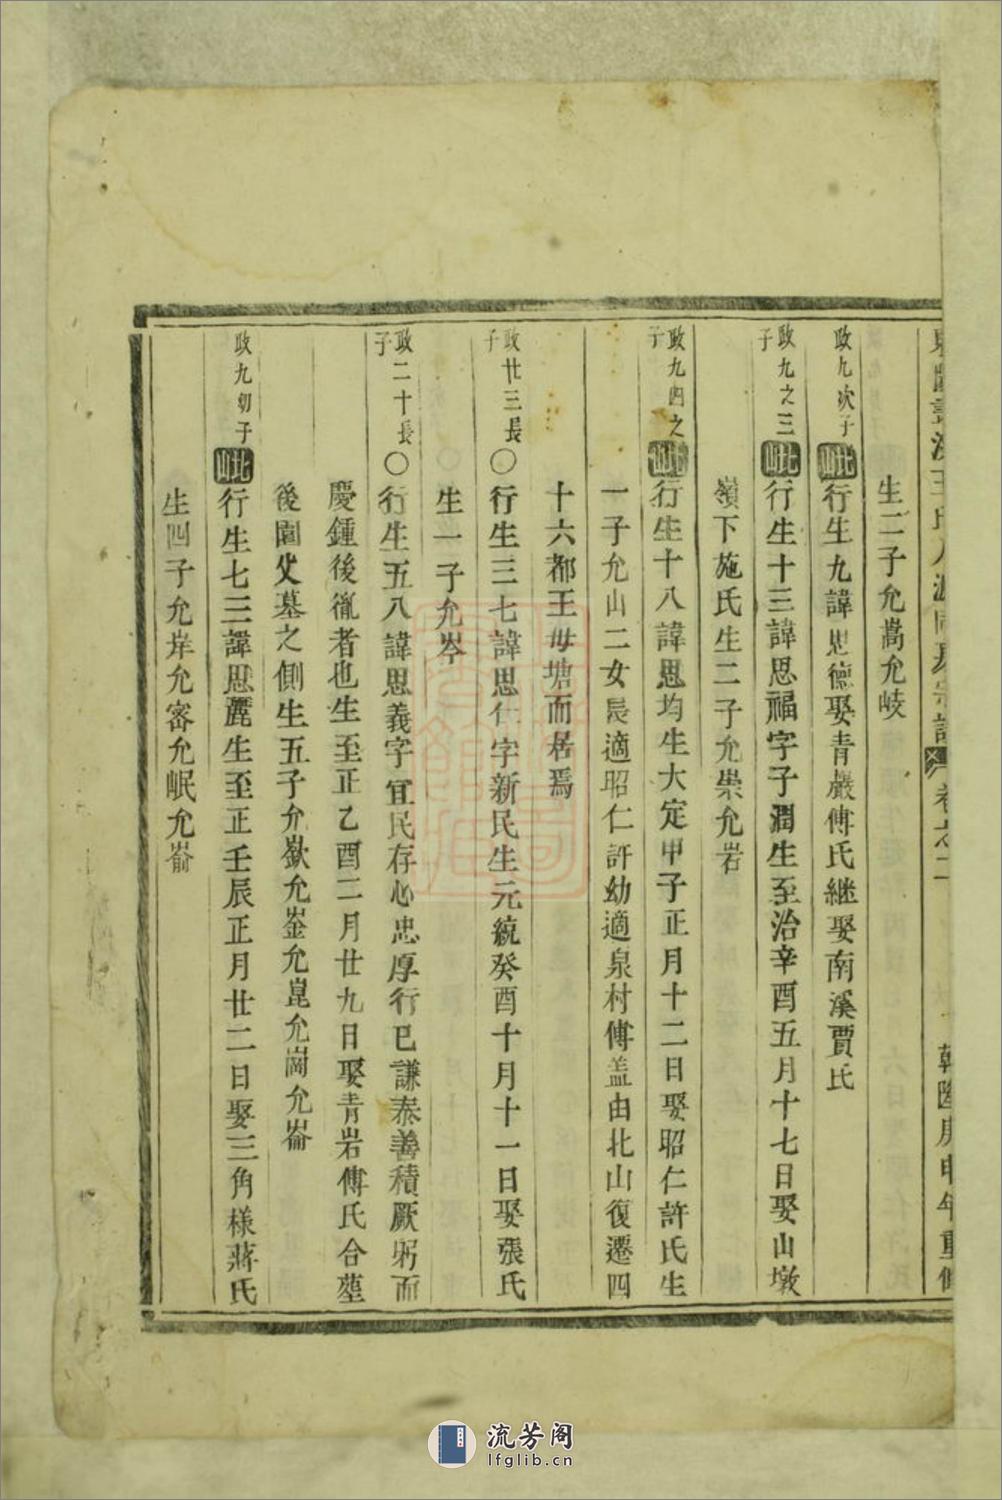 生二子允嵩允岐
政九次子 北山 行生九諱思德娶青巖傅氏継娶南溪賈氏
政九之三子 北山 行生十三諱思福字子潤生至治辛酉五月十七日娶山墩
嶺下施氏生二子允崇允岩
政九四之子 北山 行生十八諱思均生大定甲子正月十二日娶昭仁許氏生
一子允山二女長適昭仁許幼適泉村傅盖由北山復遷四
十六都王毋塘而居焉
政廿三長子〇行生三七諱思仁字新民生元統癸酉十月十一日娶張氏
生一子允岑
政二十長子〇行生五八諱思義字宜民存心忠厚行巳謙泰善積厥躬而
慶鍾後胤者也生至正乙酉二月廿九日娶青岩傅氏合塟
後園父墓之側生五子允嶽允崟允崑允崗允崙
政九初子 北山 行生七三諱思麗生至正壬辰正月廿二日娶三角様蔣氏
生四子允岸允審允岷允崳
卷之二
庚申年重修
流芳阁
lfglib.cn